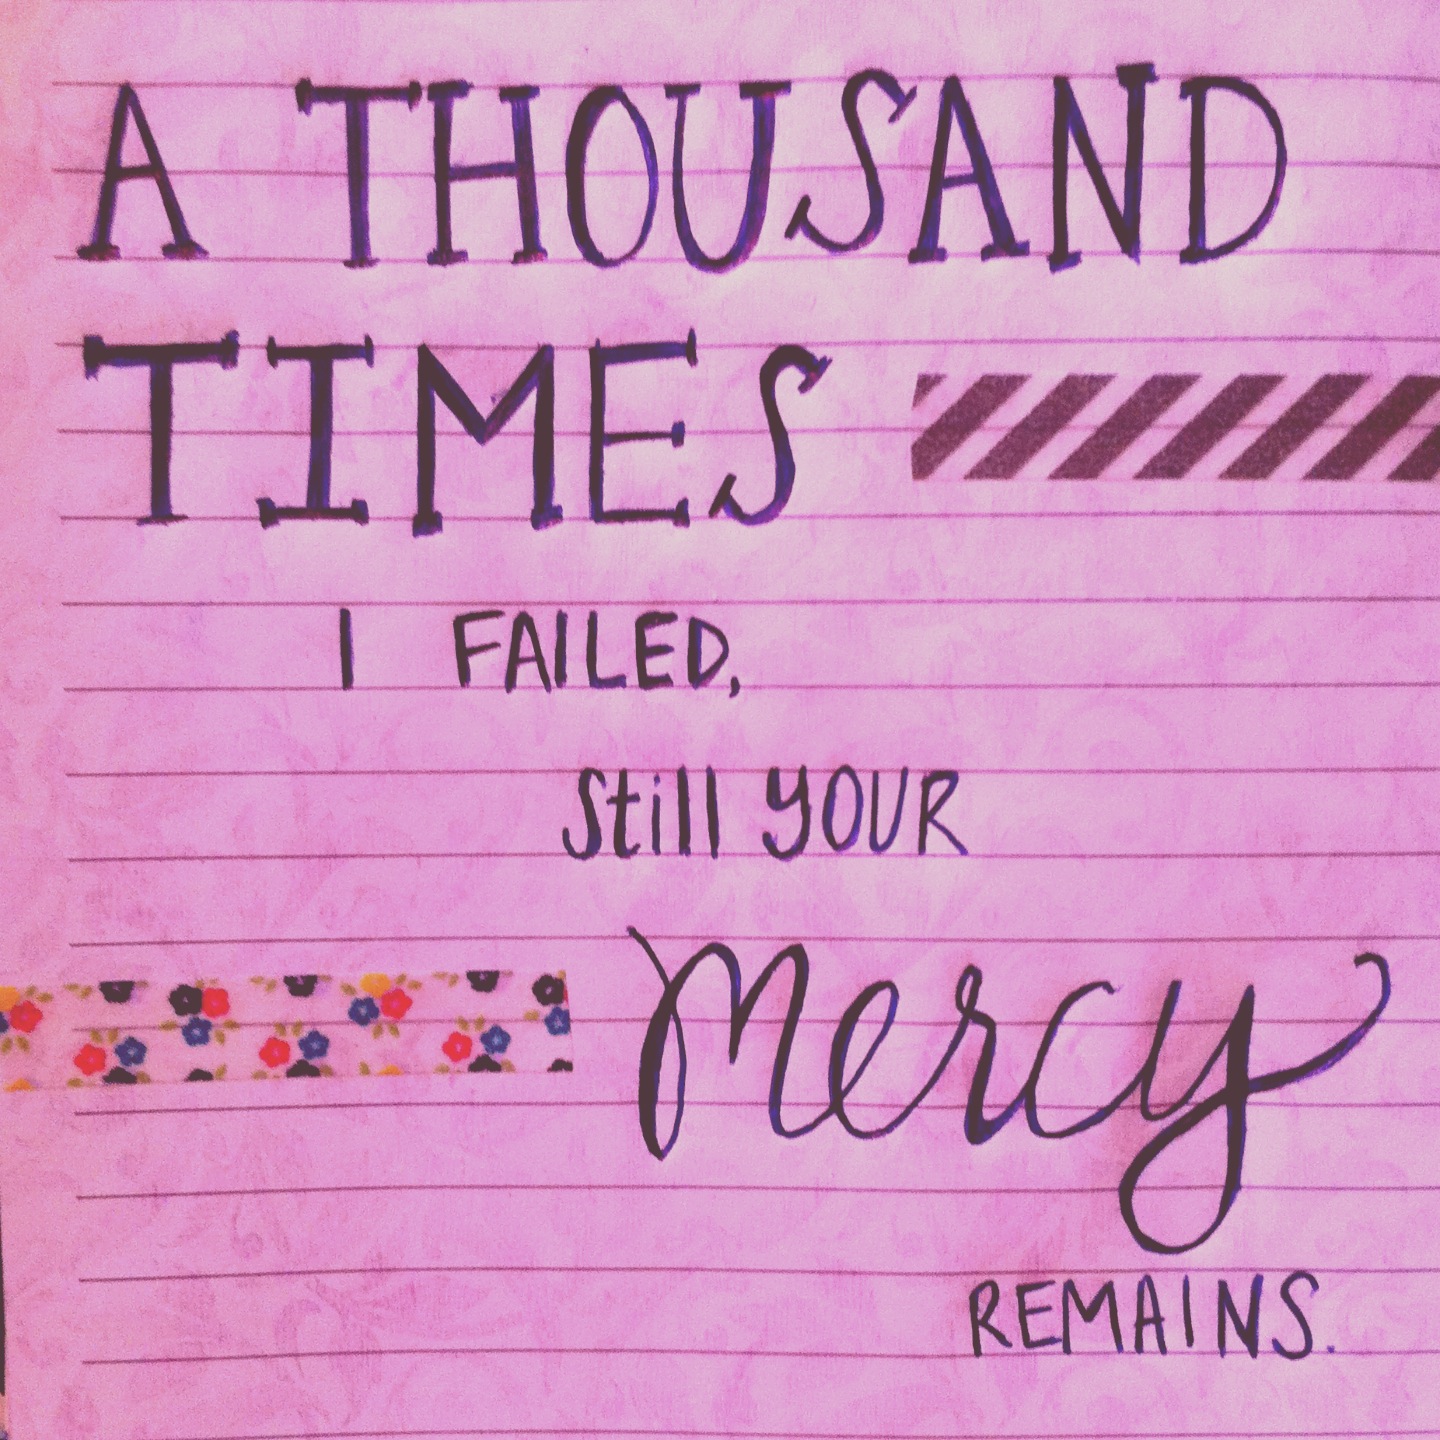 A THOUSAND
TIMES
I FAILED,
Still YOUR
Mercy
REMAINS.